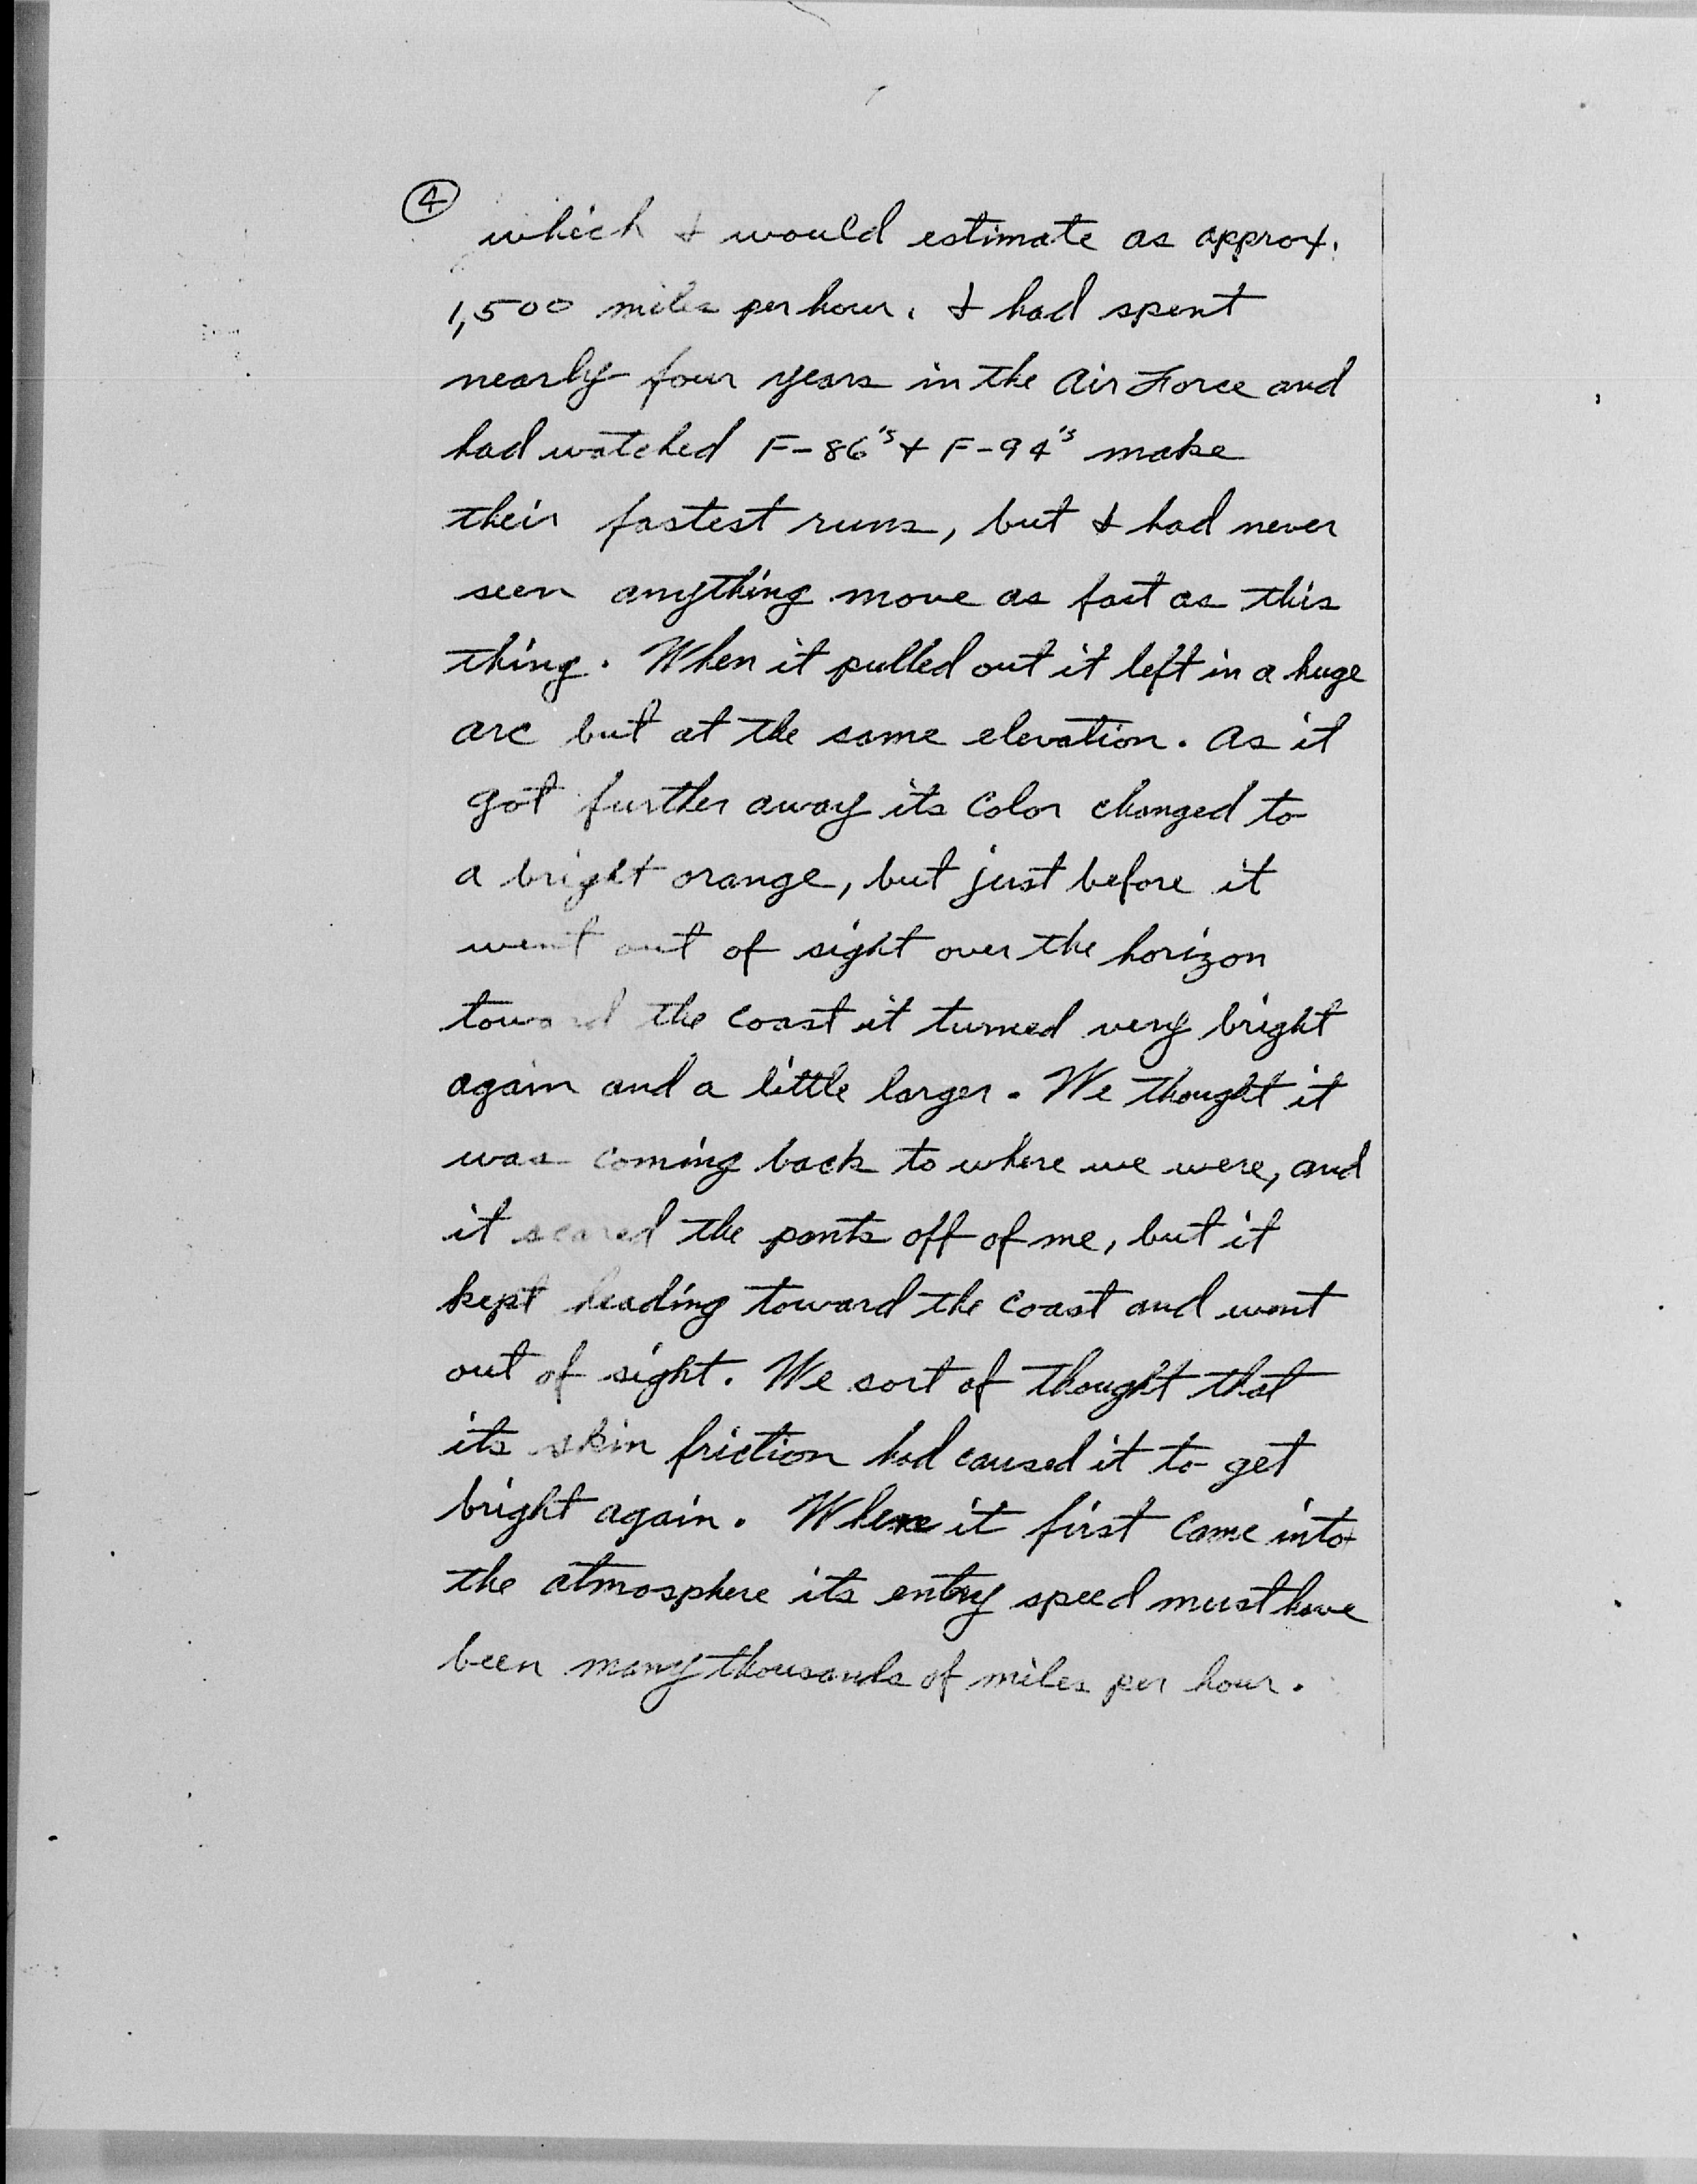 4
which I would estimate as approx.
1,500 miles per hour. I had spent
nearly four years in the Air Force and
had watched F-86's + F-94's make
their fastest runs, but I had never
seen anything move as fast as this
thing. When it pulled out it left in a huge
arc but at the same elevation. As it
got further away its color changed to
a bright orange, but just before it
went out of sight over the horizon
toward the coast it turned very bright
again and a little larger. We thought it
was coming back to where we were, and
it scared the pants off of me, but it
kept heading toward the coast and went
out of sight. We sort of thought that
its skin friction had caused it to get
bright again. When it first came into
the atmosphere its entry speed must have
been many thousands of miles per hour.